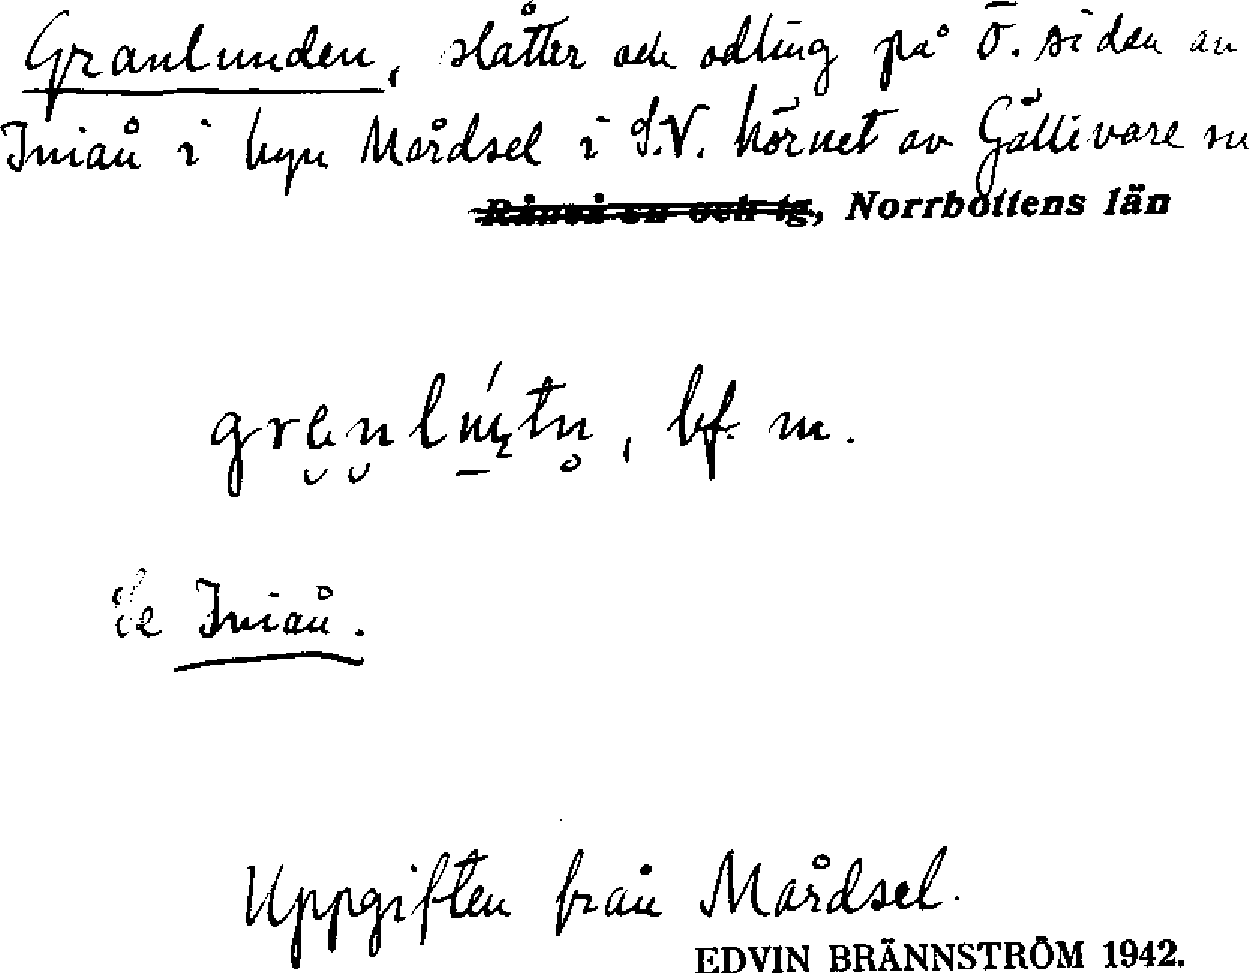 Granlunden, slåtter och odling på Ö. sidan av
Iniån i byn Mårdsel i S.V. hörnet av Gällivare sn
Råneå sn och tg, Norrbottens län
bf. m.
se Iniån.
Uppgiften från Mårdsel.
EDVIN BRÄNNSTRÖM 1942.